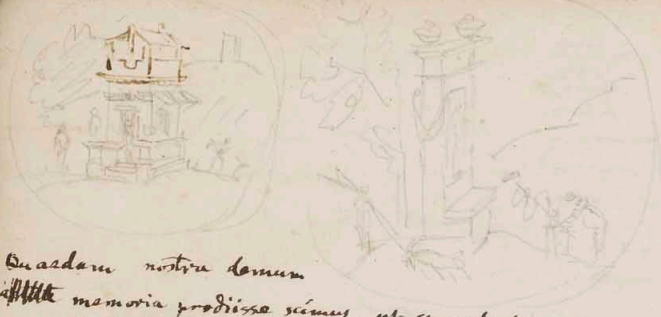 Quaedam nostra demum
memoria prodiisse scimus